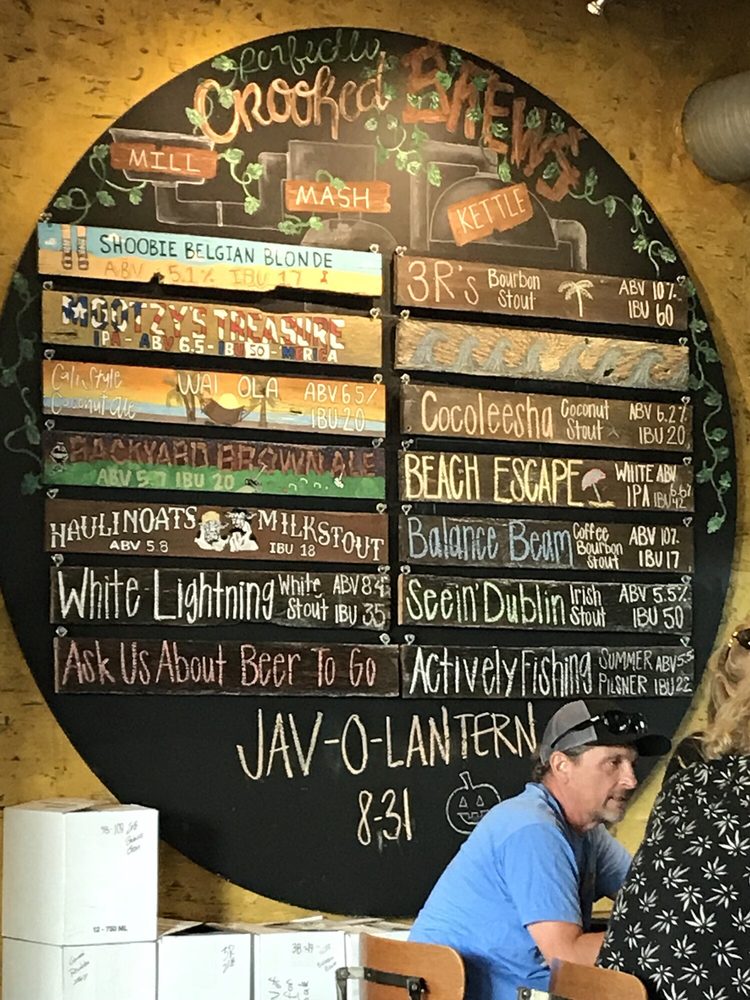 Perfectly
Crooked BREWS
MILL
MASH
KETTLE
SHOOBIE BELGIAN BLONDE
ABV 5.1% IBU 17
MOOTZY'S TREASURE
IPA - ABV 6.5 - IBU 50 - 'MERICA
Cali Style
Coconut Ale
WAI OLA
ABV 6.5%
IBU 20
BACKYARD BROWN ALE
ABV 5.7 IBU 20
HAULINOATS MILKSTOUT
ABV 5.8 IBU 18
White Lightning
White
Stout
ABV 8.4
IBU 35
Ask Us About Beer To Go
3R's
Bourbon
Stout
ABV 10%
IBU 60
Cocoleesha
Coconut
Stout
ABV 6.2%
IBU 20
BEACH ESCAPE
WHITE
IPA
ABV 6.6%
IBU 42
Balance Beam
Coffee
Bourbon
Stout
ABV 10%
IBU 17
Seein' Dublin
Irish
Stout
ABV 5.5%
IBU 50
Actively Fishing
SUMMER
PILSNER
ABV 5.5
IBU 22
JAV-O-LANTERN
8-31
12 - 750 ML